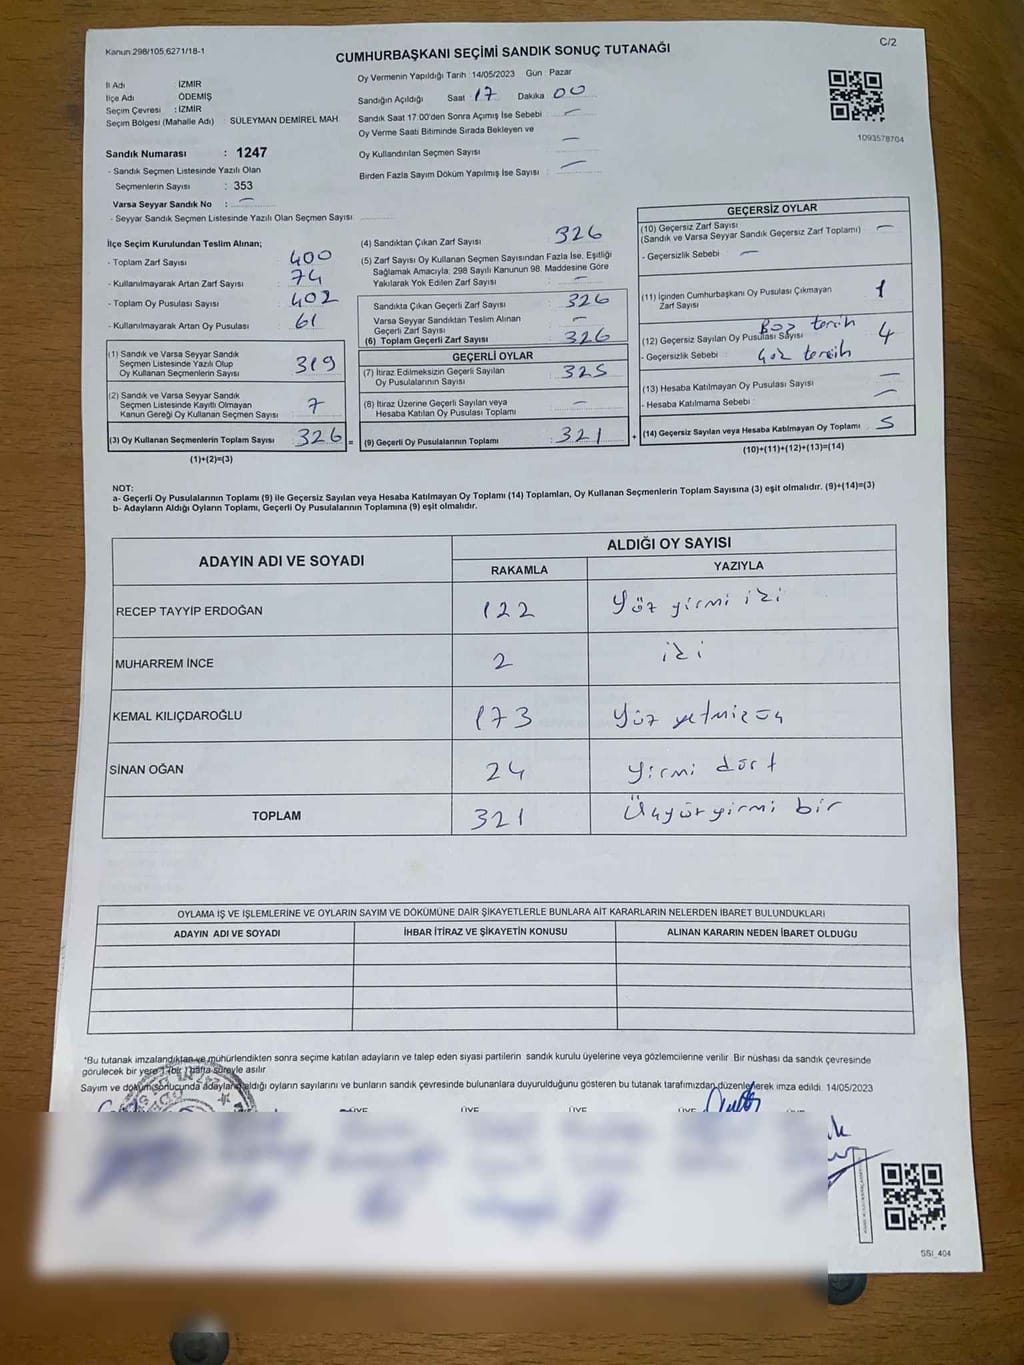 Kanun:298/105,6271/18-1
C/2
CUMHURBAŞKANI SEÇİMİ SANDIK SONUÇ TUTANAĞI
İl Adı İZMİR
İlçe Adı ÖDEMİŞ
Seçim Çevresi : İZMİR
Seçim Bölgesi (Mahalle Adı) : SÜLEYMAN DEMİREL MAH
Sandık Numarası : 1247
- Sandık Seçmen Listesinde Yazılı Olan
Seçmenlerin Sayısı : 353
Varsa Seyyar Sandık No : —
- Seyyar Sandık Seçmen Listesinde Yazılı Olan Seçmen Sayısı
Oy Vermenin Yapıldığı Tarih : 14/05/2023 Gün : Pazar
Sandığın Açıldığı Saat 17 Dakika 00
Sandık Saat 17:00'den Sonra Açımış İse Sebebi : —
Oy Verme Saati Bitiminde Sırada Bekleyen ve
Oy Kullandırılan Seçmen Sayısı : —
Birden Fazla Sayım Döküm Yapılmış İse Sayısı : —
1093578704
İlçe Seçim Kurulundan Teslim Alınan;
- Toplam Zarf Sayısı : 400
- Kullanılmayarak Artan Zarf Sayısı : 74
- Toplam Oy Pusulası Sayısı : 402
- Kullanılmayarak Artan Oy Pusulası : 61
(1) Sandık ve Varsa Seyyar Sandık
Seçmen Listesinde Yazılı Olup
Oy Kullanan Seçmenlerin Sayısı : 319
(2) Sandık ve Varsa Seyyar Sandık
Seçmen Listesinde Kayıtlı Olmayan
Kanun Gereği Oy Kullanan Seçmen Sayısı : 7
(3) Oy Kullanan Seçmenlerin Toplam Sayısı : 326 =
(1)+(2)=(3)
(4) Sandıktan Çıkan Zarf Sayısı : 326
(5) Zarf Sayısı Oy Kullanan Seçmen Sayısından Fazla İse, Eşitliği
Sağlamak Amacıyla; 298 Sayılı Kanunun 98. Maddesine Göre
Yakılarak Yok Edilen Zarf Sayısı : —
Sandıkta Çıkan Geçerli Zarf Sayısı : 326
Varsa Seyyar Sandıktan Teslim Alınan
Geçerli Zarf Sayısı : —
(6) Toplam Geçerli Zarf Sayısı : 326
GEÇERLİ OYLAR
(7) İtiraz Edilmeksizin Geçerli Sayılan
Oy Pusulalarının Sayısı : 325
(8) İtiraz Üzerine Geçerli Sayılan veya
Hesaba Katılan Oy Pusulası Toplamı : —
(9) Geçerli Oy Pusulalarının Toplamı : 321 +
GEÇERSİZ OYLAR
(10) Geçersiz Zarf Sayısı
(Sandık ve Varsa Seyyar Sandık Geçersiz Zarf Toplamı) : —
- Geçersizlik Sebebi : —
(11) İçinden Cumhurbaşkanı Oy Pusulası Çıkmayan
Zarf Sayısı : 1
(12) Geçersiz Sayılan Oy Pusulası Sayısı : 4
- Geçersizlik Sebebi : tercih
tercih
(13) Hesaba Katılmayan Oy Pusulası Sayısı : —
- Hesaba Katılmama Sebebi : —
(14) Geçersiz Sayılan veya Hesaba Katılmayan Oy Toplamı : 5
(10)+(11)+(12)+(13)=(14)
NOT:
a- Geçerli Oy Pusulalarının Toplamı (9) ile Geçersiz Sayılan veya Hesaba Katılmayan Oy Toplamı (14) Toplamları, Oy Kullanan Seçmenlerin Toplam Sayısına (3) eşit olmalıdır. (9)+(14)=(3)
b- Adayların Aldığı Oyların Toplamı, Geçerli Oy Pusulalarının Toplamına (9) eşit olmalıdır.
ADAYIN ADI VE SOYADI ALDIĞI OY SAYISI
RAKAMLA YAZIYLA
RECEP TAYYİP ERDOĞAN 122 Yüz yirmi iki
MUHARREM İNCE 2 iki
KEMAL KILIÇDAROĞLU 173 Yüz yetmiş üç
SİNAN OĞAN 24 yirmi dört
TOPLAM 321 Üçyüzyirmi bir
OYLAMA İŞ VE İŞLEMLERİNE VE OYLARIN SAYIM VE DÖKÜMÜNE DAİR ŞİKAYETLERLE BUNLARA AİT KARARLARIN NELERDEN İBARET BULUNDUKLARI
ADAYIN ADI VE SOYADI İHBAR İTİRAZ VE ŞİKAYETİN KONUSU ALINAN KARARIN NEDEN İBARET OLDUĞU
*Bu tutanak imzalandıktan ve mühürlendikten sonra seçime katılan adayların ve talep eden siyasi partilerin sandık kurulu üyelerine veya gözlemcilerine verilir. Bir nüshası da sandık çevresinde
görülecek bir yere 1 (bir ) hafta süreyle asılır
Sayım ve döküm sonucunda adayların aldığı oyların sayılarını ve bunların sandık çevresinde bulunanlara duyurulduğunu gösteren bu tutanak tarafımızdan düzenlenerek imza edildi. 14/05/2023
ÜYE ÜYE ÜYE ÜYE ÜYE
SSI_404